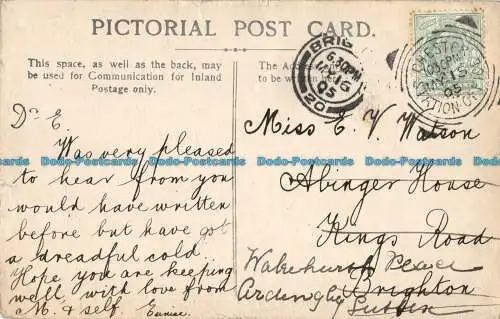 PICTORIAL POST CARD.
This space, as well as the back, may be
used for Communication for Inland
Postage only.
The Address
to be written
BRIG
6.30PM
JY 16
05
Dr E.
Was very pleased
to hear from you
would have written
before but have got
a dreadful cold.
Hope you are keeping
well, with love from
M. & self. Eunice.
Miss E. V. Watson
Abinger House
Kings Road
Brighton
Wakehurst Place
Ardingly
Sussex
Dodo-Postcards.com Dodo-Postcards.com Dodo-Postcards.com Dodo-Postcards.com